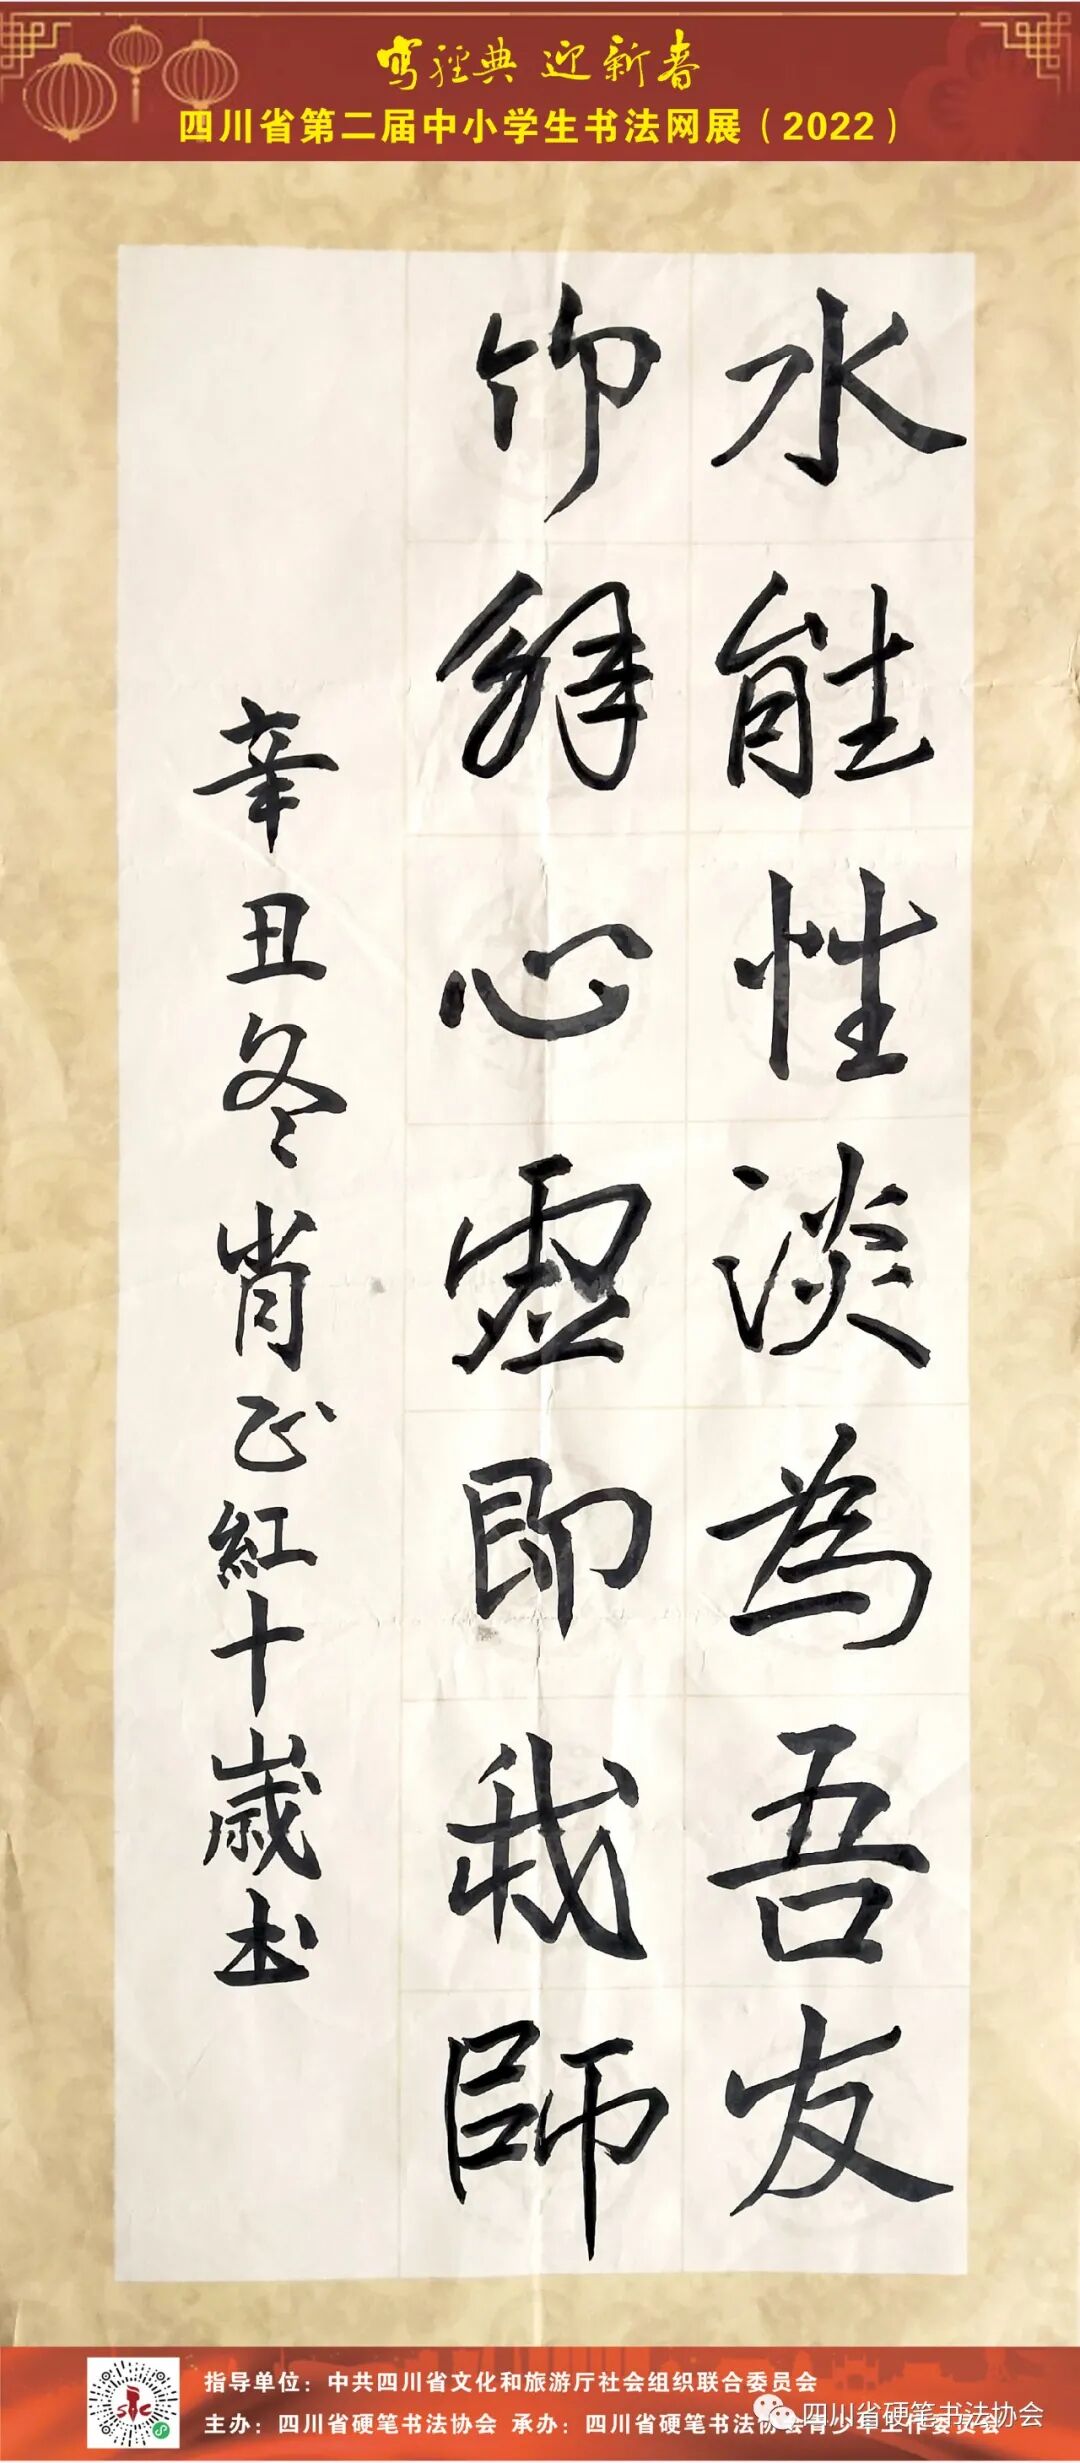 写经典 迎新春
四川省第二届中小学生书法网展（2022）
水能性淡為吾友
竹解心虛即我師
辛丑冬肖正紅十歲书
指导单位：中共四川省文化和旅游厅社会组织联合委员会
主办：四川省硬笔书法协会 承办：四川省硬笔书法协会青少年工作委员会
四川省硬笔书法协会